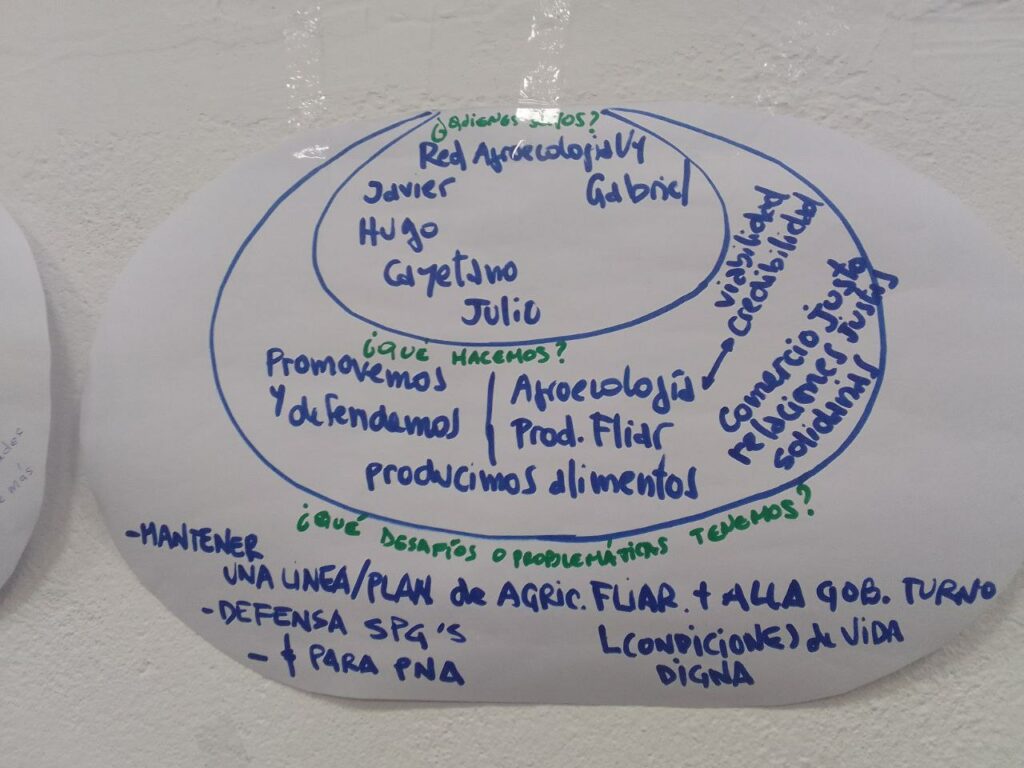 ¿QUIENES SOMOS?
Red Agroecología Uy
Javier
Gabriel
Hugo
Cayetano
Julio
¿QUÉ HACEMOS?
Promovemos
y defendemos
Agroecología
Prod. Fliar
producimos alimentos
viabilidad
credibilidad
comercio justo
relaciones justas
solidarias
¿QUÉ DESAFÍOS O PROBLEMÁTICAS TENEMOS?
-MANTENER
UNA LINEA/PLAN de AGRIC. FLIAR. + ALLA GOB. TURNO
-DEFENSA SPG'S
L(CONDICIONES) de VIDA
DIGNA
- $ PARA PNA
más